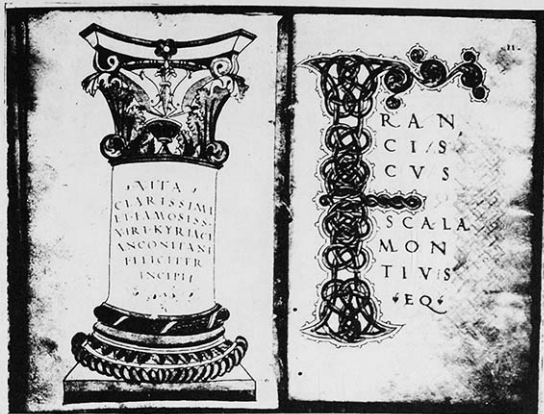 VITA
CLARISSIMI
ET FAMOSISS
VIRI KYRIACI
ANCONITANI
FELICITER
INCIPIT
-11-
FRAN
CIS
CVS
SCALA
MON
TIVS
EQ